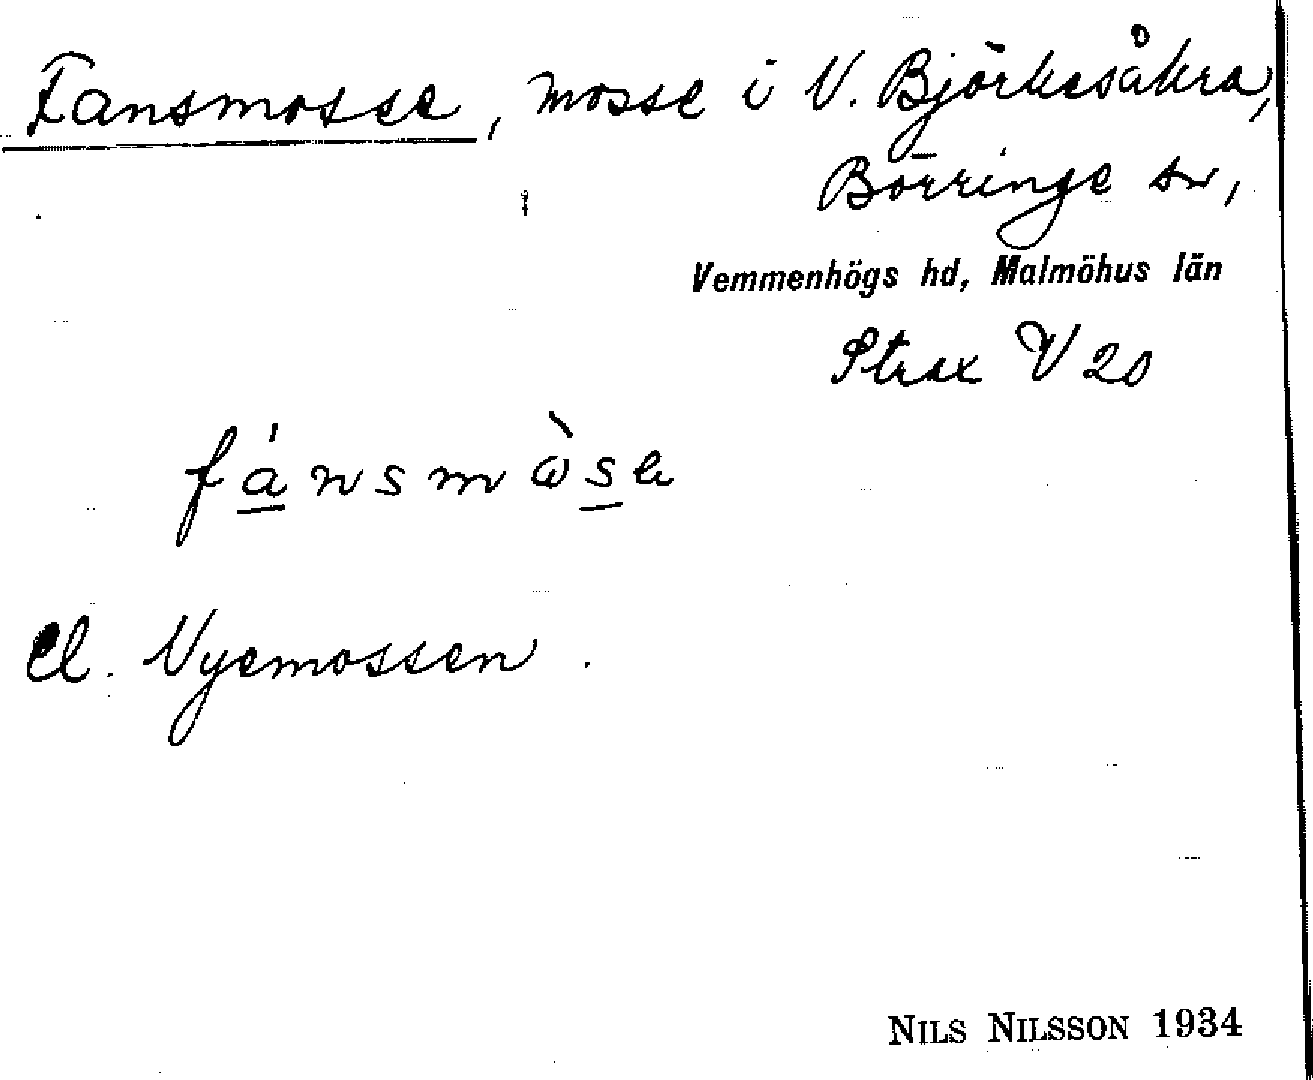 Fansmosse, mosse i V. Björkesåkra,
Börringe sn,
Vemmenhögs hd, Malmöhus län
Strax V 20
fánsmòse
El. Nyemossen.
NILS NILSSON 1934